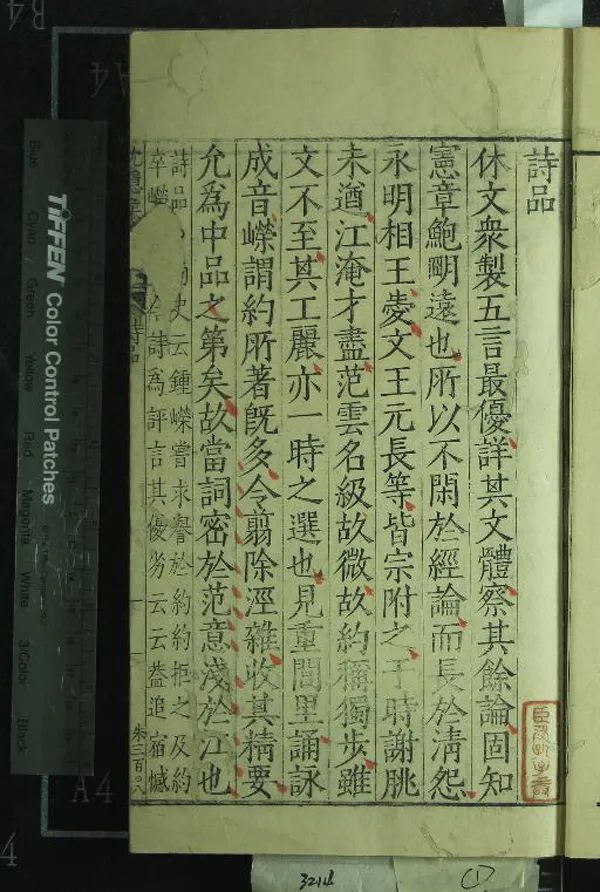 詩品
休文衆製五言最優詳其文體察其餘論固知
憲章鮑明遠也所以不閑於經論而長於清怨
永明相王愛文王元長等皆宗附之于時謝朓
未遒江淹才盡范雲名級故微故約稱獨步雖
文不至其工麗亦一時之選也見重閭里誦詠
成音嶸謂約所著旣多今翦除淫雜收其精要
允爲中品之第矣故當詞密於范意淺於江也
詩品
史云鍾嶸嘗求譽於約約拒之及約
卒嶸
詩爲評言其優劣云云葢追宿憾
詩品
朱三百
TIFFEN Color Control Patches
Blue Cyan Green Yellow Red Magenta White 3/Color Black
A4
3214
①